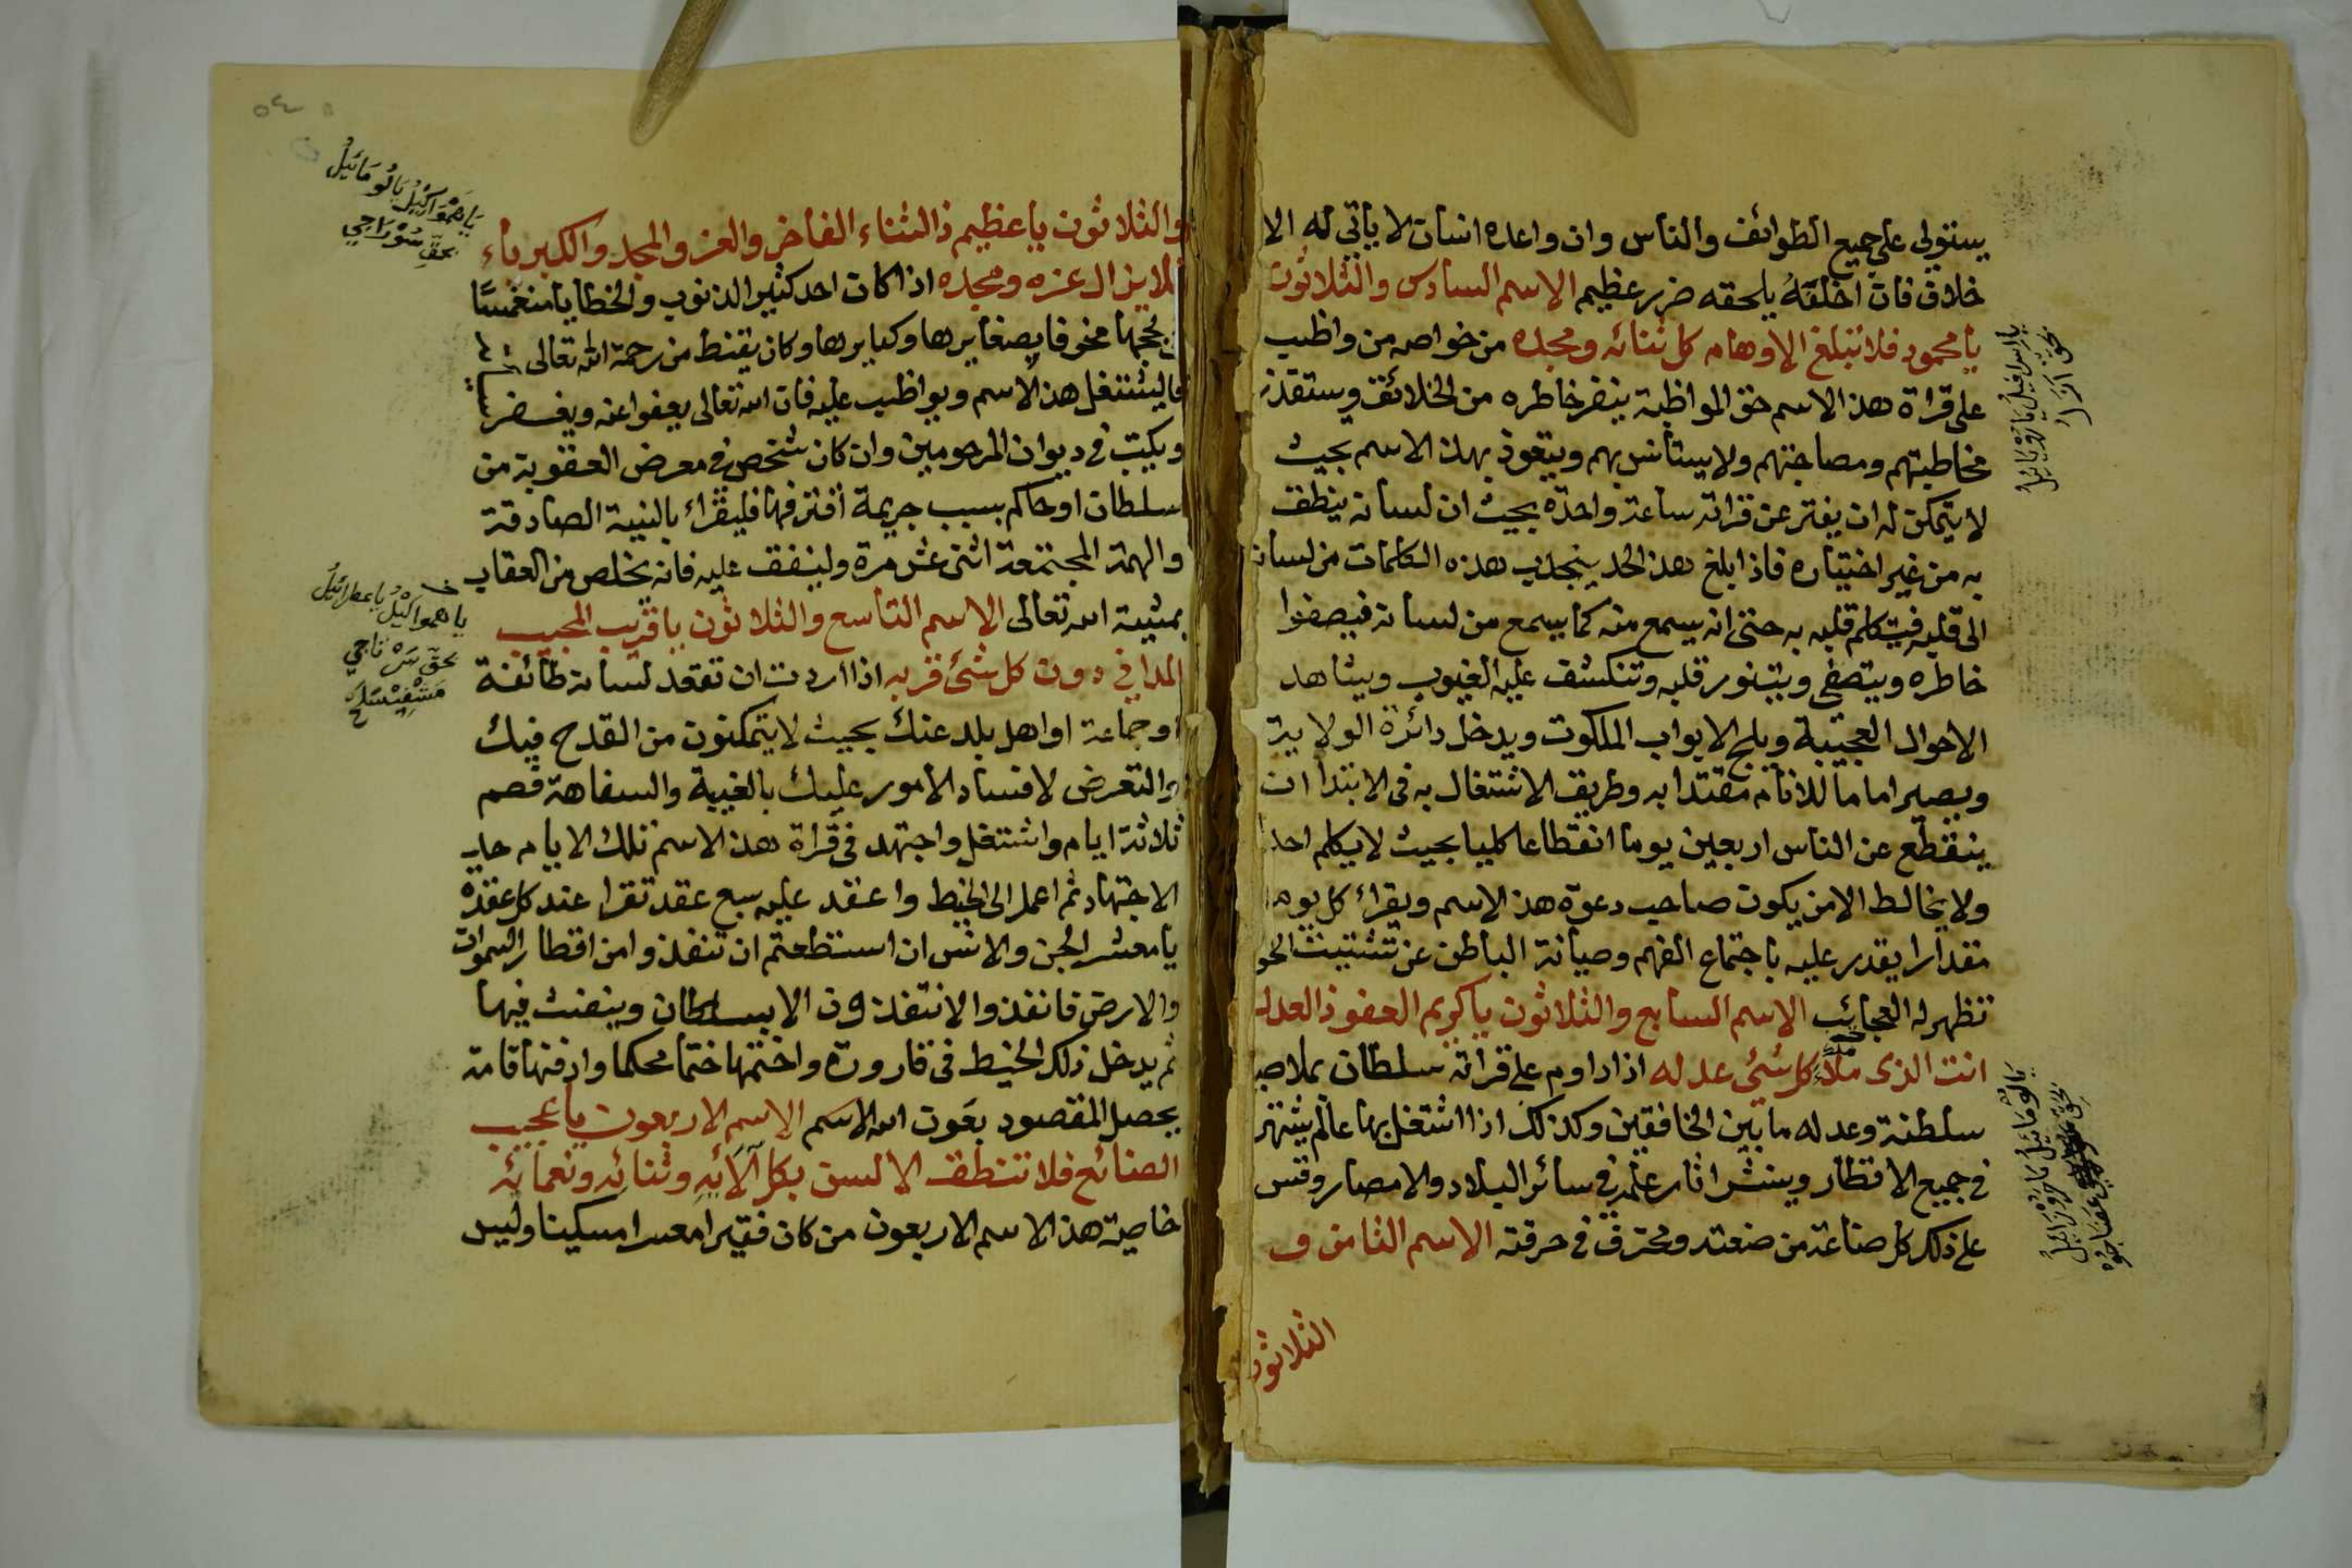 يستولي على جميع الطوائف والناس وان واعده انسان لا ياتي له الا
خلاف فان اخلفه يلحقه ضرر عظيم الاسم السادس والثلاثون
يا محمود فلا تبلغ الاوهام كل ثنائه ومجده من خواصه من واظب
على قراة هذا الاسم حق المواظبة ينفر خاطره من الخلائق ويستقذر
مخاطبتهم ومصاحبتهم ولا يستأنس بهم ويتعوذ بهذا الاسم بحيث
لا يتمكن له ان يفتر عن قراته ساعة واحدة بحيث ان لسانه ينطق
به من غير اختياره فاذا بلغ هذا الحد ينجذب هذه الكلمات من لسانه
الى قلبه فيتكلم قلبه به حتى انه يسمع منه كما يسمع من لسانه فيصفوا
خاطره ويتصفى ويتنور قلبه وتنكشف عليه الغيوب ويشاهد
الاحوال العجيبة ويلج الابواب الملكوت ويدخل دائرة الولاية
ويصير اماما للانام مقتدا به وطريق الاشتغال به في الابتدا ان
ينقطع عن الناس اربعين يوما انقطاعا كليا بحيث لا يكلم احدا
ولا يخالط الا من يكون صاحب دعوة هذا الاسم ويقراء كل يوم
مقدارا يقدر عليه باجتماع الفهم وصيانة الباطن عن تشتيت
تظهر له العجائب الاسم السابع والثلاثون يا كريم العفو ذا العدل
انت الذى ملأ كل شئ عدله اذا داوم على قراته سلطان يملا
سلطنة وعدله ما بين الخافقين وكذلك اذا اشتغل بها عالم يشتهر
في جميع الاقطار وينشر اثار علمه في سائر البلاد والامصار وقس
على ذلك كل صناعة من صنعته ومحترف في حرفته الاسم الثامن و
الثلاثون
يا اسرافيل يا روياييل
بحق
يا لومائيل يا روزائيل
بحق
والثلاثون يا عظيم ذا الثناء الفاخر والعز والمجد والكبرياء
فلا يزال عزه ومجده اذا كان احد كثير الذنوب والخطايا منغمسا
بحجمها مخوفا بصغايرها وكبايرها وكان يقنط من رحمة الله تعالى
فاليشتغل هذا الاسم ويواظب عليه فان الله تعالى يعفوا عنه ويغفر
ويكتب في ديوان المرحومين وان كان شخص في معرض العقوبة من
سلطان او حاكم بسبب جريمة اقترفها فليقراء بالنية الصادقة
والهمة المجتمعة اثنى عشر مرة ولينفق عليه فانه يخلص من العقاب
بمشية الله تعالى الاسم التاسع والثلاثون يا قريب المجيب
المداني دون كل شئ قربه اذا اردت ان تعقد لسان طائفة
او جماعة او اهل بلد عنك بحيث لا يتمكنون من القدح فيك
والتعرض لافساد الامور عليك بالغيبة والسفاهة فصم
ثلاثة ايام واشتغل واجتهد في قراة هذا الاسم تلك الايام حد
الاجتهاد ثم اعمل الى الخيط واعقد عليه سبع عقد تقرا عند كل عقدة
يا معشر الجن والانس ان استطعتم ان تنفذوا من اقطار السموات
والارض فانفذوا لا تنفذون الا بسلطان وينفث فيها
ثم يدخل ذلك الخيط في قارورة واختمها ختما محكما وادفنها فانه
يحصل المقصود بعون الله الاسم الاربعون يا عجيب
الصنائع فلا تنطق الالسن بكل آلائه وثنائه ونعمائه
خاصية هذا الاسم الاربعون من كان فقيرا معسرا مسكينا وليس
يا همواكيل يا لومائيل
بحق سوراجي
يا همواكيل يا عطرائيل
بحق